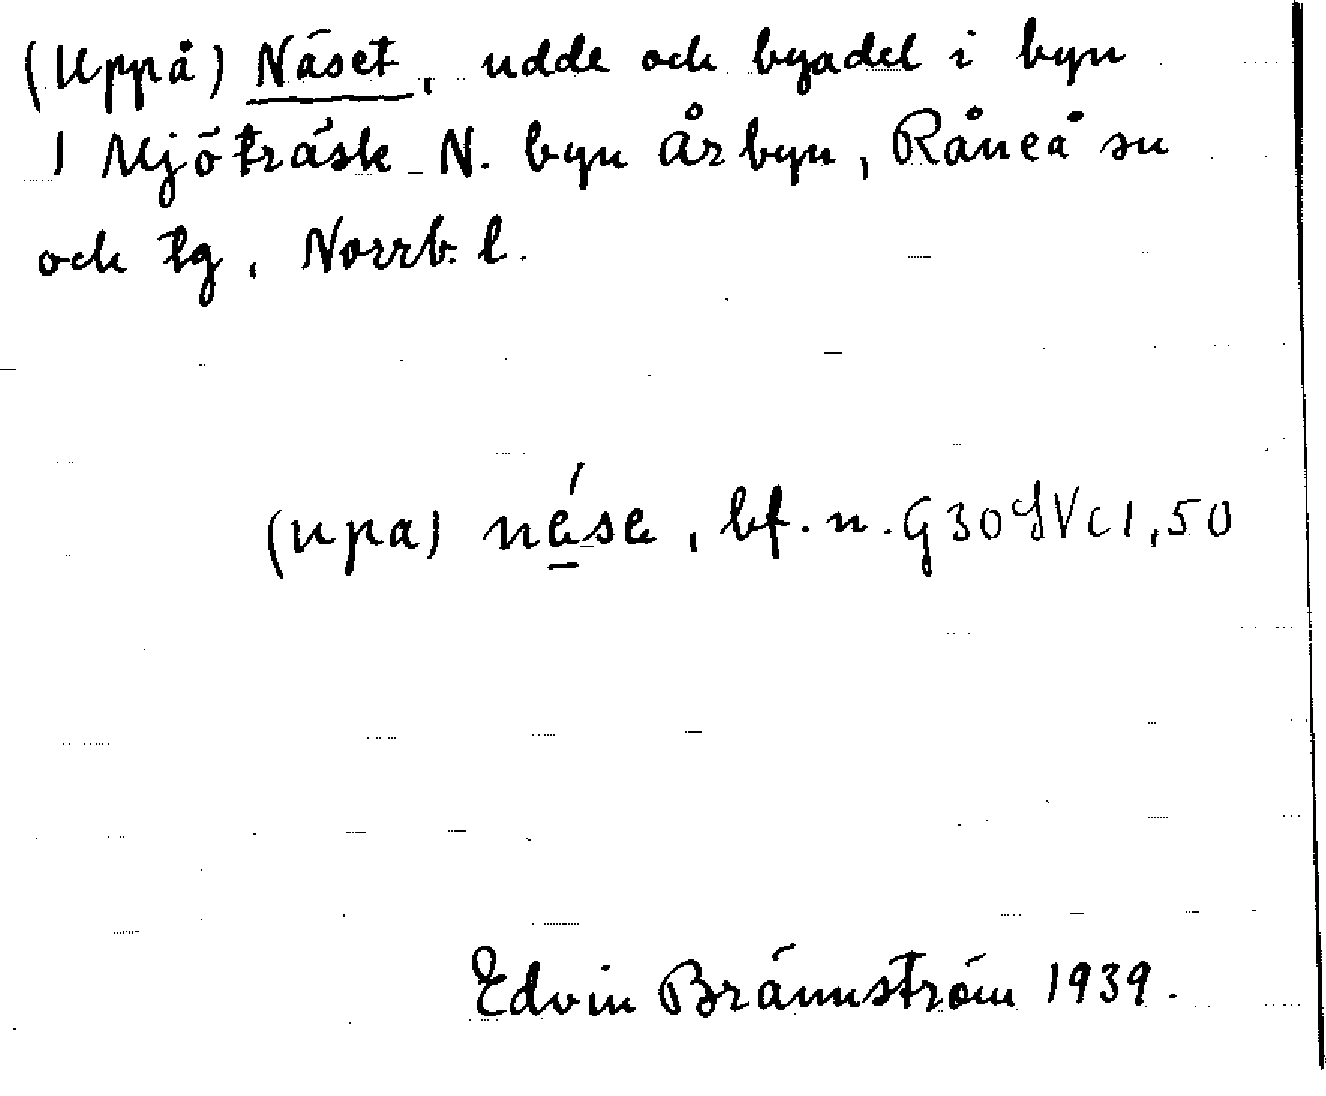 (Uppå) Näset, udde och byadel i byn
1 Mjöträsk N. byn Årbyn, Råneå sn
och tg, Norrb. l.
(upa) nése, bf. n. G30SVc1,50
Edvin Brännström 1939.